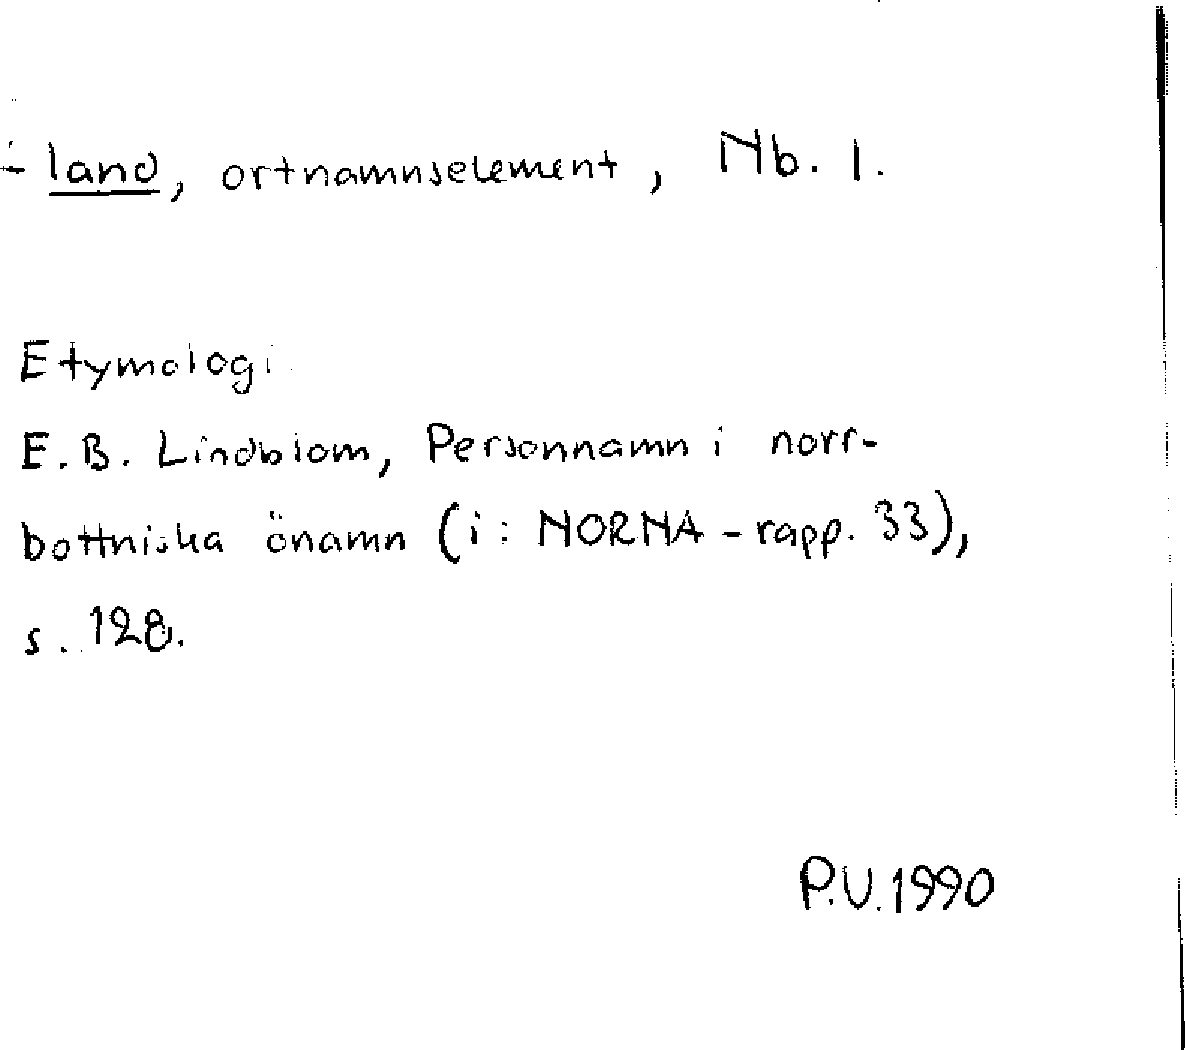 - land, ortnamnselement, Nb. l.
Etymologi
E.B. Lindblom, Personnamn i norr-
bottniska önamn (i: NORNA-rapp. 33),
s. 128.
P.U. 1990